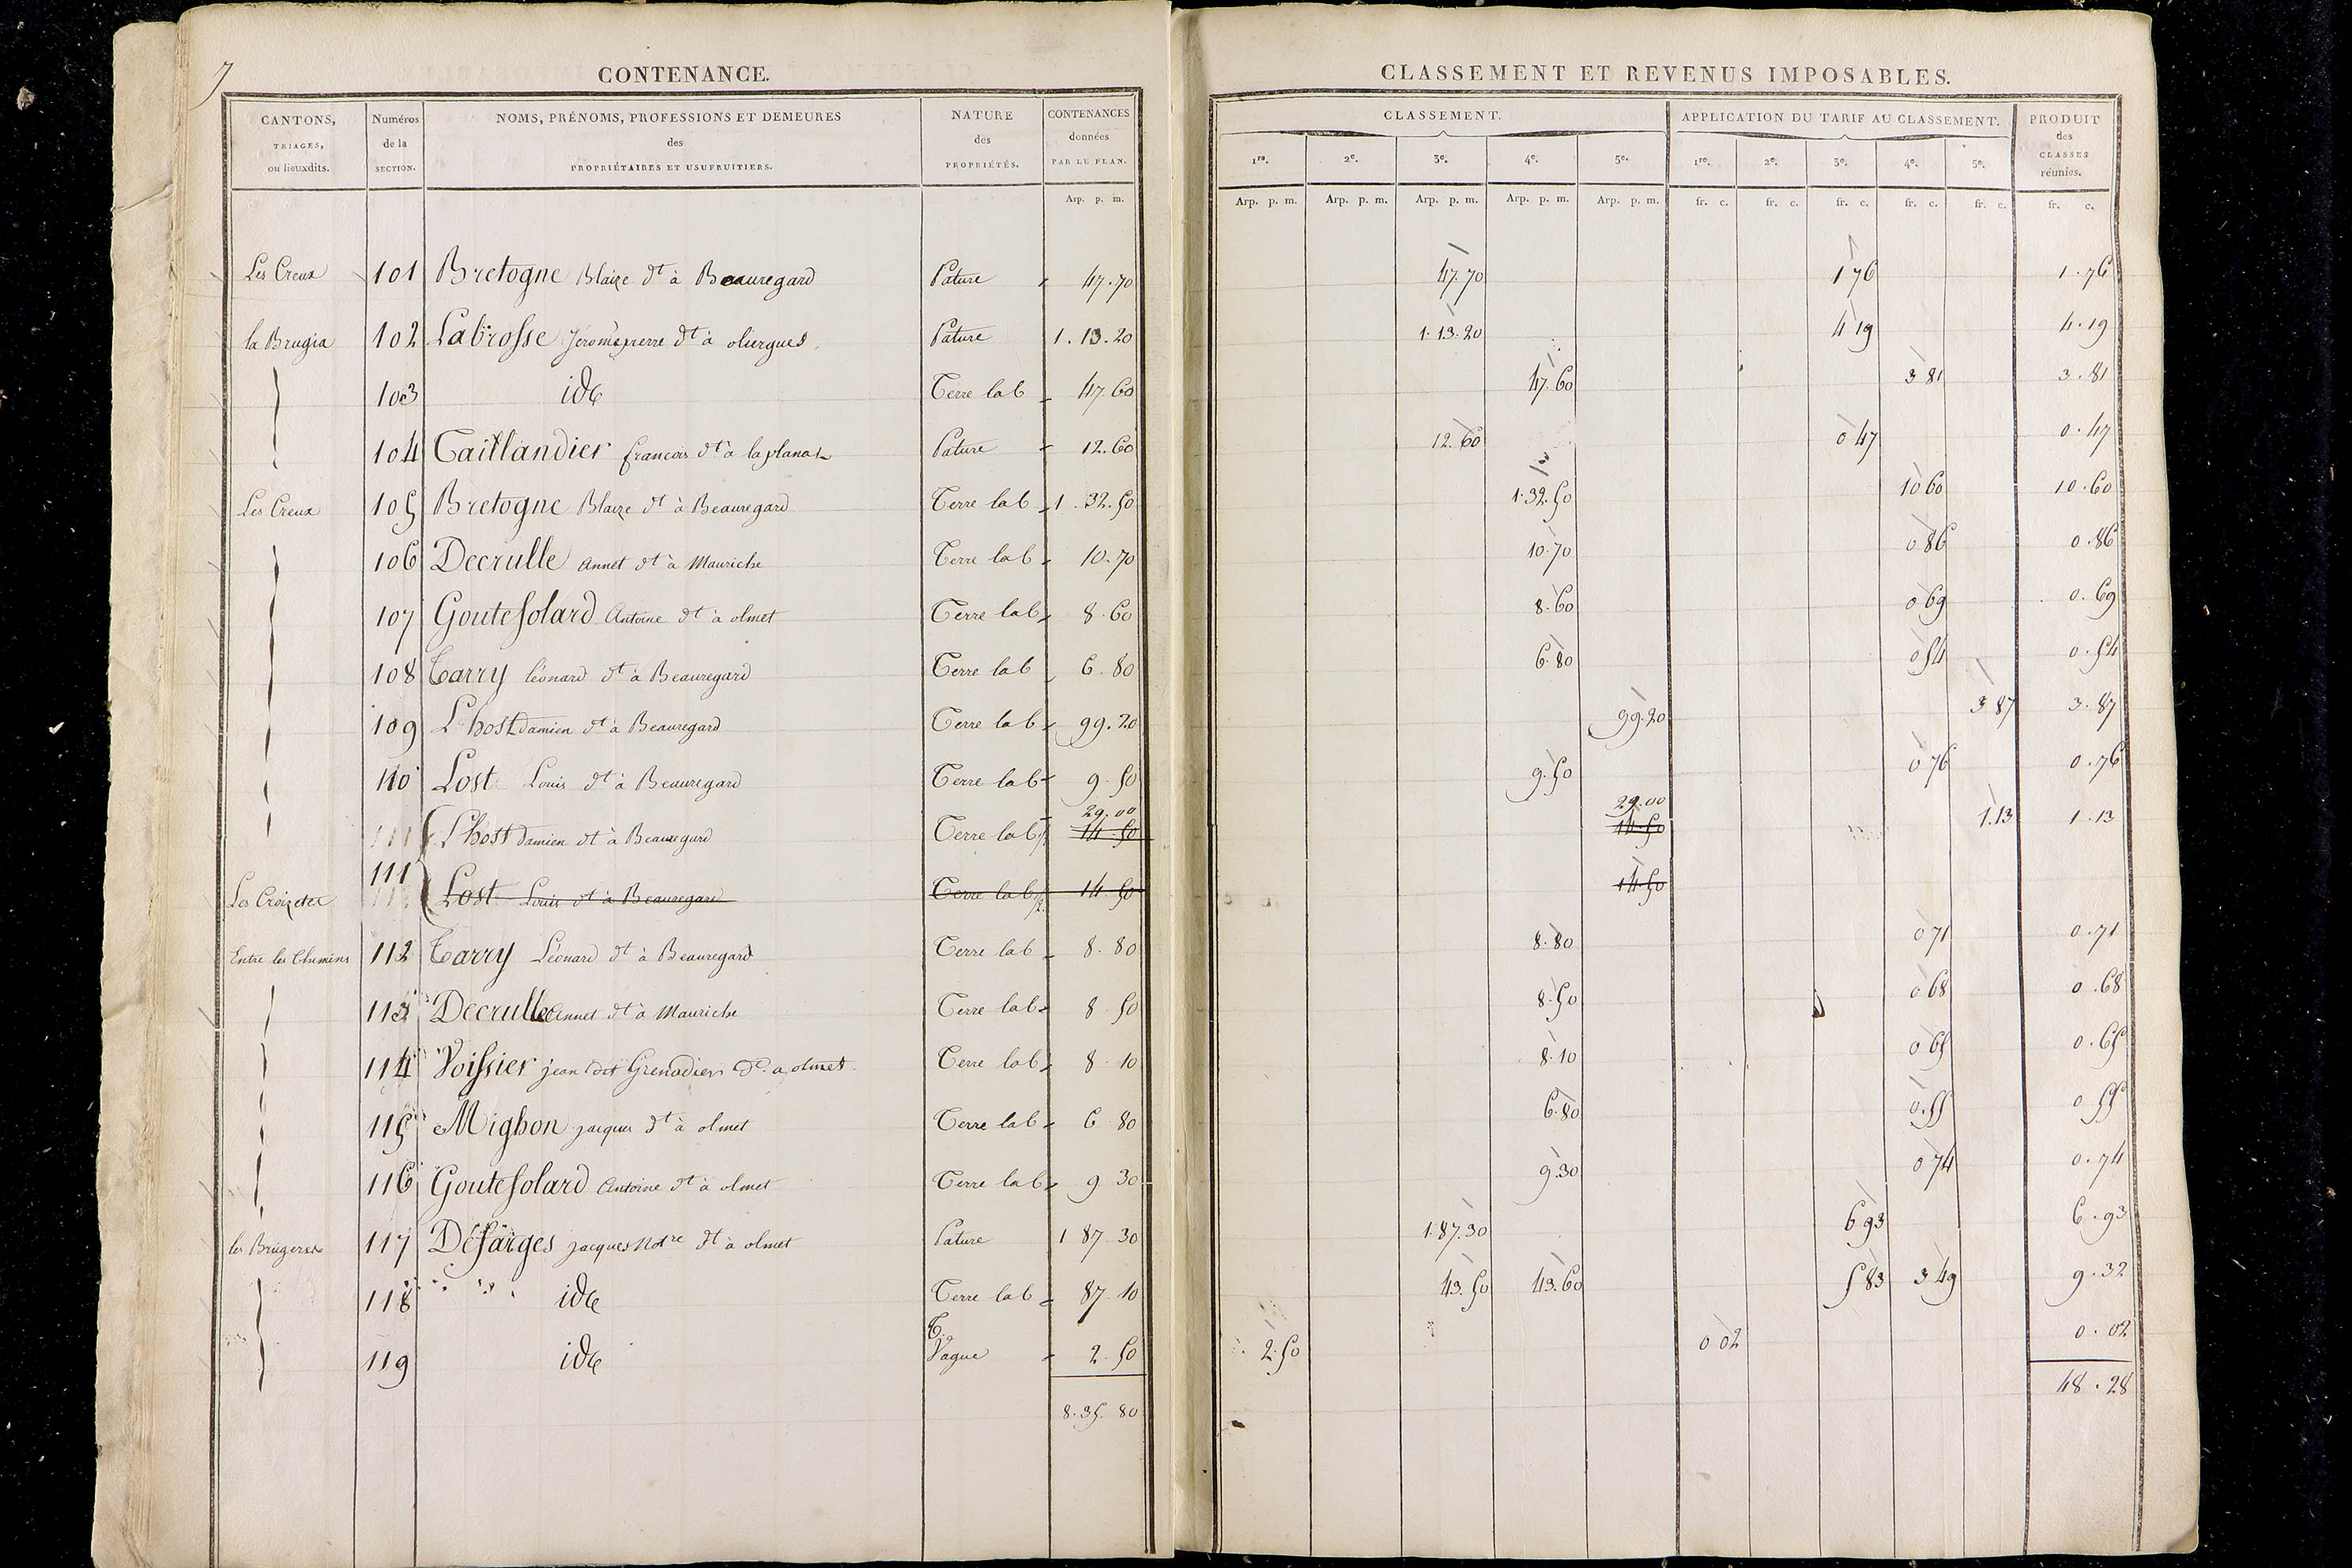 7
CONTENANCE.
CANTONS, TRIAGES, ou lieuxdits.
Numéros de la SECTION.
NOMS, PRÉNOMS, PROFESSIONS ET DEMEURES des PROPRIÉTAIRES ET USUFRUITIERS.
NATURE des PROPRIÉTÉS.
CONTENANCES données PAR LE PLAN.
Arp. p. m.
Les Creux 101 Bretogne Blaize dt à Beauregard Pature 47.70
la Brugia 102 Labrosse Jérome pierre dt à oliergues Pature 1.13.20
103 ide Terre lab 47.60
104 Taillandier francois dt à la planat Pature 12.60
Les Creux 105 Bretogne Blaize dt à Beauregard Terre lab 1.32.50
106 Decrulle Annet dt à Mauriche Terre lab 10.70
107 Goutesolard Antoine dt à olmet Terre lab 8.60
108 Tarry léonard dt à Beauregard Terre lab 6.80
109 L'host damien dt à Beauregard Terre lab 99.20
110 Lost Louis dt à Beauregard Terre lab 9.50
29.00
111 L'host damien dt à Beauregard Terre lab 14.50
111
Les Croizetes Lost Louis dt à Beauregard Terre lab 14.50
Entre les Chemins 112 Tarry Léonard dt à Beauregard Terre lab 8.80
113 Decrulle Annet dt à Mauriche Terre lab 8.50
114 Voissier jean dit Grenadier dt a olmet Terre lab 8.10
115 Mighon jacques dt à olmet Terre lab 6 80
116 Goutesolard Antoine dt à olmet Terre lab 9 30
117 Défarges jacques Notre dt à olmet Pature 1 87 30
118 ide Terre lab 87.10
119 ide T. Vague 2.50
8.35.80
CLASSEMENT ET REVENUS IMPOSABLES.
CLASSEMENT.
APPLICATION DU TARIF AU CLASSEMENT.
PRODUIT des CLASSES réunies.
1re. 2e. 3e. 4e. 5e. 1re. 2e. 3e. 4e. 5e.
Arp. p. m. Arp. p. m. Arp. p. m. Arp. p. m. Arp. p. m. fr. c. fr. c. fr. c. fr. c. fr. c. fr. c.
47.70 1 76 1.76
1.13.20 4 19 4.19
47.60 3 81 3.81
12.60 0 47 0.47
1.32.50 10 60 10.60
10.70 0 86 0.86
8.60 0 69 0.69
6.80 0 54 0.54
99.20 3 87 3.87
9.50 0 76 0.76
29.00
14.50 1.13 1.13
14.50
8.80 0 71 0.71
8.50 0 68 0.68
8.10 0 65 0.65
6.80 0.55 0 55
9.30 0 74 0.74
1.87.30 6 93 6.93
43.50 43.60 5 83 3 49 9.32
2.50 0 02 0.02
48.28